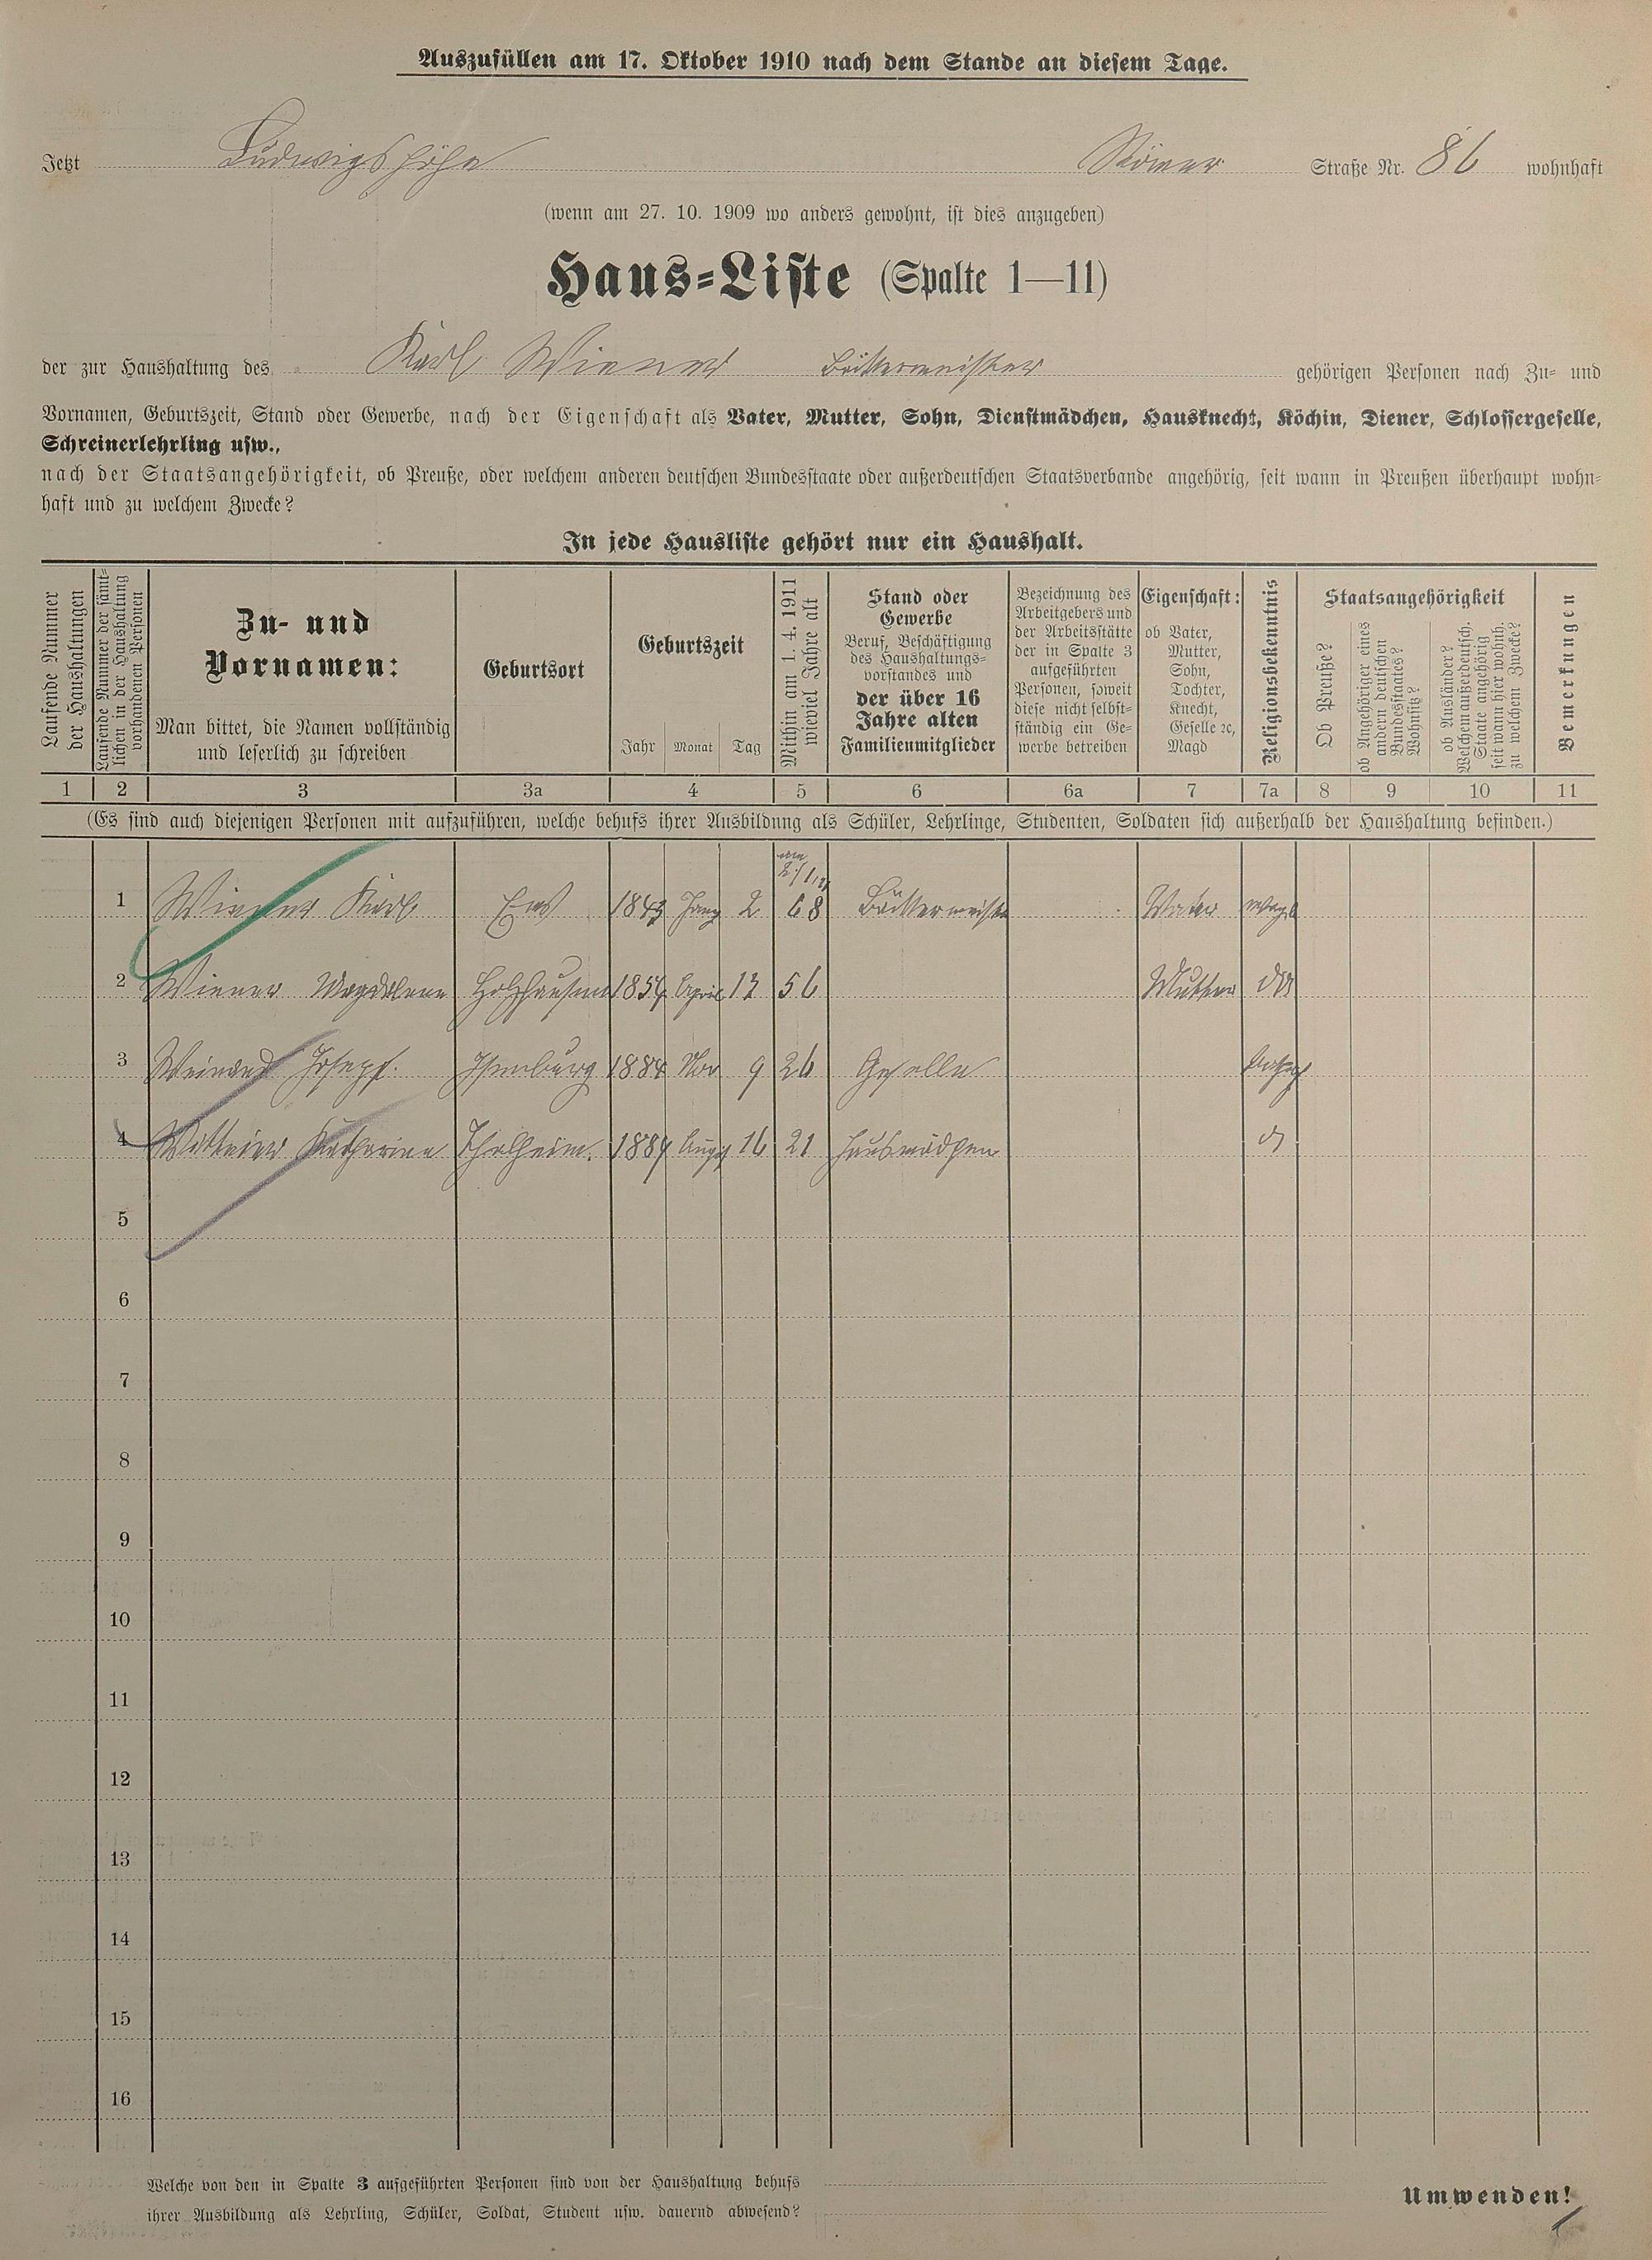 Auszufüllen am 17. Oktober 1910 nach dem Stande an diesem Tage.
Jetzt Ludwigshöhe Römer Straße Nr. 86 wohnhaft
(wenn am 27. 10. 1909 wo anders gewohnt, ist dies anzugeben)
Haus-Liste (Spalte 1—11)
der zur Haushaltung des Karl Wiener gehörigen Personen nach Zu- und
Vornamen, Geburtszeit, Stand oder Gewerbe, nach der Eigenschaft als Vater, Mutter, Sohn, Dienstmädchen, Hausknecht, Köchin, Diener, Schlossergeselle,
Schreinerlehrling usw.,
nach der Staatsangehörigkeit, ob Preuße, oder welchem anderen deutschen Bundesstaate oder außerdeutschen Staatsverbande angehörig, seit wann in Preußen überhaupt wohn-
haft und zu welchem Zwecke?
In jede Hausliste gehört nur ein Haushalt.
Laufende Nummer
der Haushaltungen
Laufende Nummer der sämt-
lichen in der Haushaltung
vorhandenen Personen
Zu- und
Vornamen:
Man bittet, die Namen vollständig
und leserlich zu schreiben
Geburtsort
Geburtszeit
Jahr Monat Tag
Mithin am 1. 4. 1911
wieviel Jahre alt
Stand oder
Gewerbe
Beruf, Beschäftigung
des Haushaltungs-
vorstandes und
der über 16
Jahre alten
Familienmitglieder
Bezeichnung des
Arbeitgebers und
der Arbeitsstätte
der in Spalte 3
aufgeführten
Personen, soweit
diese nicht selbst-
ständig ein Ge-
werbe betreiben
Eigenschaft:
ob Vater,
Mutter,
Sohn,
Tochter,
Knecht,
Geselle ꝛc,
Magd
Religionsbekenntnis
Staatsangehörigkeit
Ob Preuße?
ob Angehöriger eines
andern deutschen
Bundesstaates?
Wohnsitz?
ob Ausländer?
Welchem außerdeutsch.
Staate angehörig
seit wann hier wohnh.
zu welchem Zwecke?
Bemerkungen
1 2 3 3a 4 5 6 6a 7 7a 8 9 10 11
(Es sind auch diejenigen Personen mit aufzuführen, welche behufs ihrer Ausbildung als Schüler, Lehrlinge, Studenten, Soldaten sich außerhalb der Haushaltung befinden.)
1 Wiener Karl Ems 1843 2 68 Vater evang
2 Wiener Magdalena Holzhausen 1854 April 13 56 Mutter
3 Weinand Joseph Isenburg 1884 Nov 9 26 Geselle
4 Katharina Thalheim 1889 Aug 16 21 Hausmädchen
5
6
7
8
9
10
11
12
13
14
15
16
Welche von den in Spalte 3 aufgeführten Personen sind von der Haushaltung behufs
ihrer Ausbildung als Lehrling, Schüler, Soldat, Student usw. dauernd abwesend?
Umwenden!